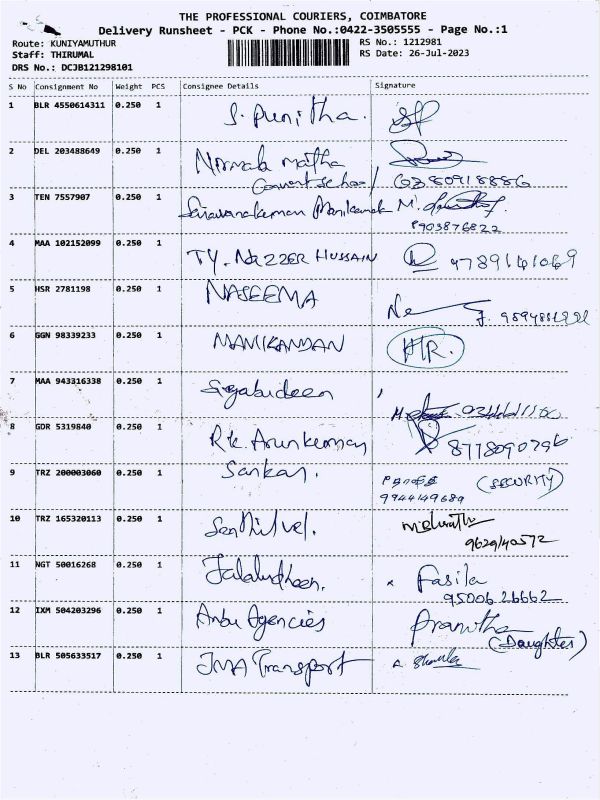 THE PROFESSIONAL COURIERS, COIMBATORE
Delivery Runsheet - PCK - Phone No.:0422-3505555 - Page No.:1
Route: KUNIYAMUTHUR RS No.: 1212981
Staff: THIRUMAL RS Date: 26-Jul-2023
DRS No.: DCJB121298101
S No Consignment No Weight PCS Consignee Details Signature
1 BLR 4550614311 0.250 1 S. Punitha. SP
2 DEL 203488649 0.250 1 Nirmala matha
Convent School 6380918886
3 TEN 7557907 0.250 1 Saravanakumar Manikandan M.
P903876822
4 MAA 102152099 0.250 1 TY. NAZZER HUSSAIN 9789141069
5 HSR 2781198 0.250 1 NASEEMA
6 GGN 98339233 0.250 1 MANIKANDAN HR.
7 MAA 943316338 0.250 1
8 GDR 5319840 0.250 1 R.K. Arunkumar 8778090796
9 TRZ 200003060 0.250 1 Sankar. (SECURITY)
9944149689
10 TRZ 165320113 0.250 1 Senthilvel.
9629140572
11 NGT 50016268 0.250 1 Jalaludheen. x Fasila
9500626662
12 IXM 504203296 0.250 1 Anbu Agencies Pranitha
(Daughter)
13 BLR 505633517 0.250 1 JMA Transport A.